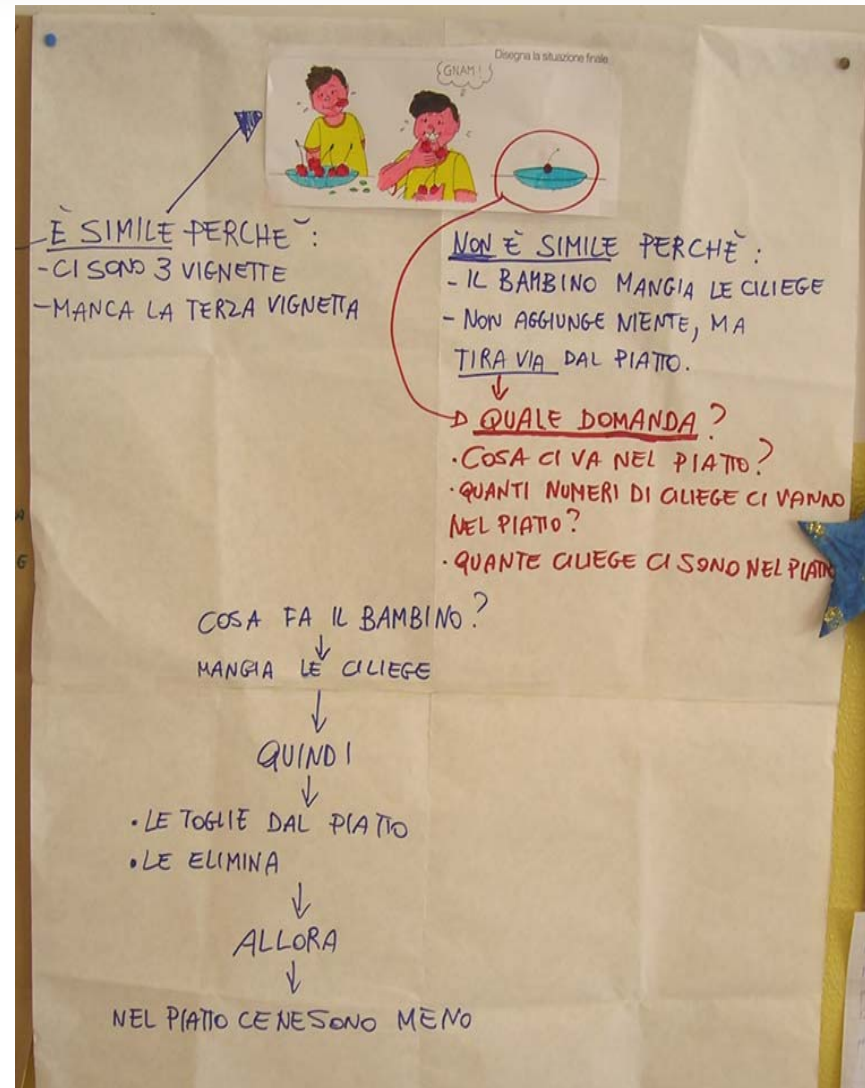 Disegna la situazione finale
GNAM!
È SIMILE PERCHÈ:
- CI SONO 3 VIGNETTE
- MANCA LA TERZA VIGNETTA
NON È SIMILE PERCHÈ:
- IL BAMBINO MANGIA LE CILIEGE
- NON AGGIUNGE NIENTE, MA
TIRA VIA DAL PIATTO.
QUALE DOMANDA?
· COSA CI VA NEL PIATTO?
· QUANTI NUMERI DI CILIEGE CI VANNO
NEL PIATTO?
· QUANTE CILIEGE CI SONO NEL PIATTO
COSA FA IL BAMBINO?
MANGIA LE CILIEGE
QUINDI
· LE TOGLIE DAL PIATTO
· LE ELIMINA
ALLORA
NEL PIATTO CE NE SONO MENO